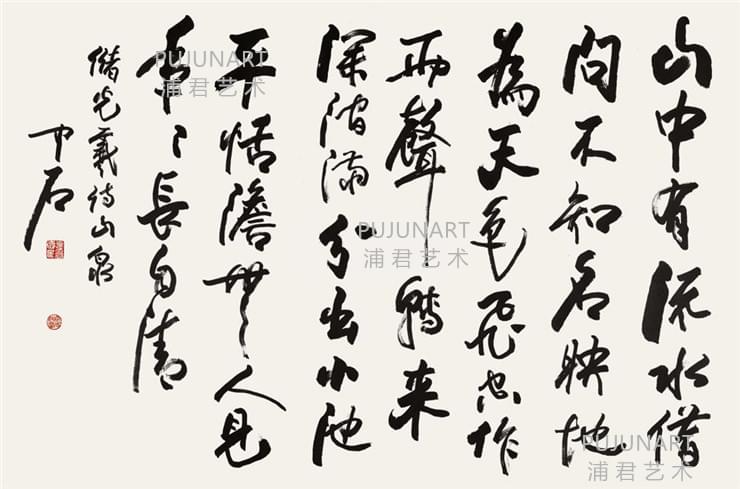 山中有流水借
問不知名映地
為天色飛空作
雨聲轉来
深澗滿分出小池
平恬澹無人見
年〻長自清
儲光羲詩山泉
中石
PUJUNART
浦君艺术
PUJUNART
浦君艺术
PUJUNART
浦君艺术